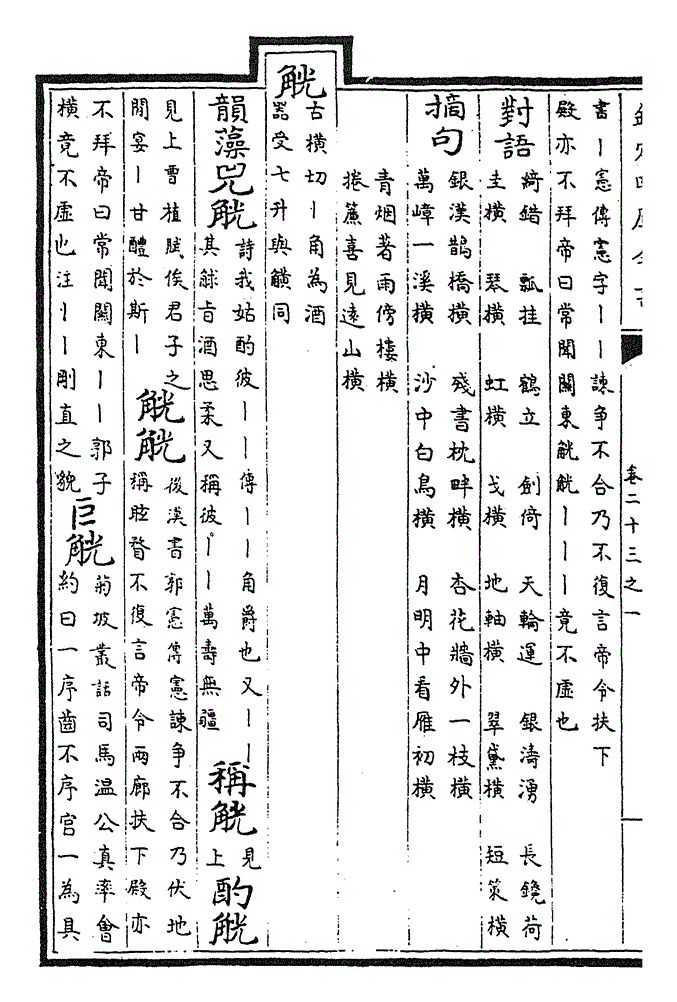 欽定四庫全書
卷二十三之一
書丨憲傳憲字丨丨諫爭不合乃不復言帝令扶下
殿亦不拜帝曰常聞關東觥觥丨丨丨竟不虛也
對語
綺錯 瓢挂 鶴立 劍倚 天輪運 銀濤湧 長鑱荷
圭橫 琴橫 虹橫 戈橫 地軸橫 翠黛橫 短策橫
摘句
銀漢鵲橋橫 殘書枕畔橫 杏花牆外一枝橫
萬嶂一溪橫 沙中白鳥橫 月明中看雁初橫
青烟著雨傍樓橫
捲簾喜見遠山橫
觥
古橫切丨角為酒
器受七升與觵同
韻藻兕觥
詩我姑酌彼丨丨傳丨丨角爵也又丨丨
其觩旨酒思柔又稱彼丨丨萬壽無疆
稱觥
見
上
酌觥
見上曹植賦俟君子之
閒宴丨甘醴於斯丨
觥觥
後漢書郭憲傳憲諫爭不合乃伏地
稱眩瞀不復言帝令兩廊扶下殿亦
不拜帝曰常聞關東丨丨郭子
橫竟不虛也注丨丨剛直之貌
巨觥
菊坡叢話司馬溫公真率會
約曰一序齒不序官一為具